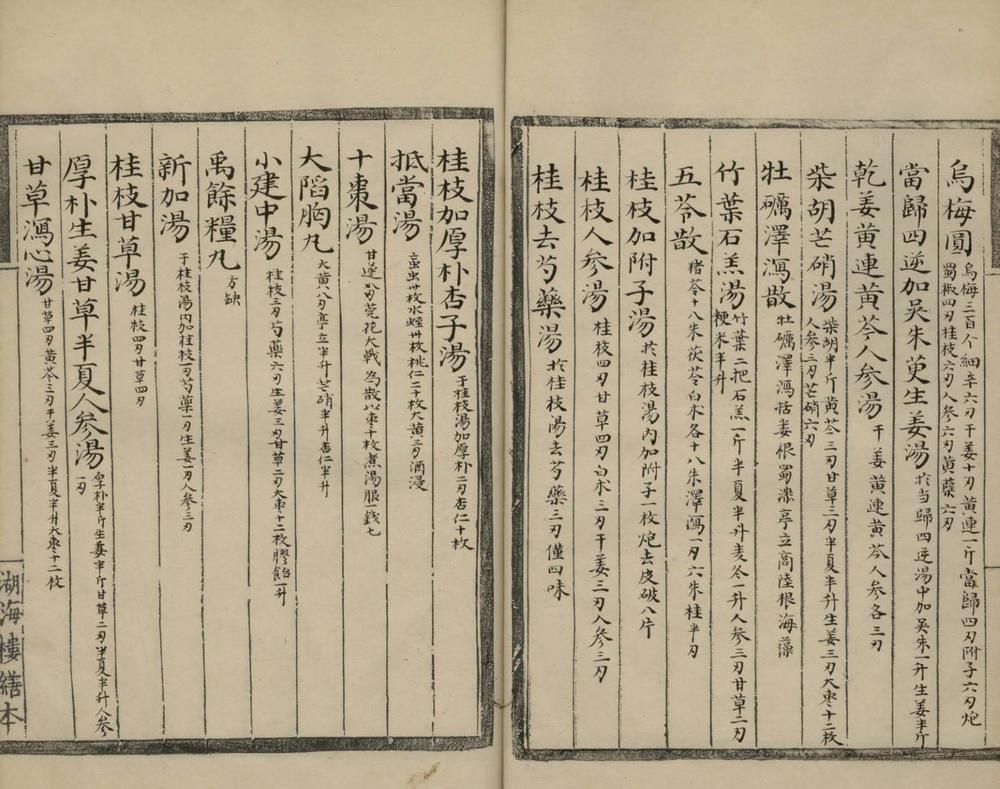 烏梅圓 烏梅三百个細辛六刃干姜十刃黄連一斤當歸四刃附子六刃炮
蜀椒四刃桂枝六刃人参六刃黄蘗六刃
當歸四逆加吴朱萸生姜湯 於当歸四逆湯中加吴朱一升生姜半斤
乾姜黄連黄芩人参湯 干姜黄連黄芩人参各三刃
柴胡芒硝湯 柴胡半斤黄芩三刃甘草三刃半夏半升生姜三刃大枣十二枚
人参三刃芒硝六刃
牡礪澤瀉散 牡礪澤瀉栝蒌根蜀漆亭立商陸根海藻
竹葉石羔湯 竹葉二把石羔一斤半夏半升麦冬一升人参三刃甘草二刃
粳米半升
五苓散 猪苓十八朱茯苓白朮各十八朱澤瀉一刃六朱桂半刃
桂枝加附子湯 於桂枝湯内加附子一枚炮去皮破八片
桂枝人参湯 桂枝四刃甘草四刃白朮三刃干姜三刃人参三刃
桂枝去芍藥湯 於桂枝湯去芍藥三刃僅四味
桂枝加厚朴杏子湯 于桂枝湯加厚朴二刃杏仁十枚
抵當湯 䖟虫卅枚水蛭卅枚桃仁二十枚大黄三刃酒浸
十棗湯 甘遂芫花大戟為散以枣十枚煮湯服一錢七
大陷胸丸 大黄八刃亭立半升芒硝半升杏仁半升
小建中湯 桂枝三刃芍藥六刃生姜三刃甘草二刃大枣十二枚膠飴一升
禹餘糧丸 方缺
新加湯 于桂枝湯内加桂枝一刃芍藥一刃生姜一刃人参三刃
桂枝甘草湯 桂枝四刃甘草四刃
厚朴生姜甘草半夏人参湯 厚朴半斤生姜半斤甘草二刃半夏半升人参
一刃
甘草瀉心湯 甘草四刃黄芩三刃干姜三刃半夏半升大枣十二枚
湖海樓繕本